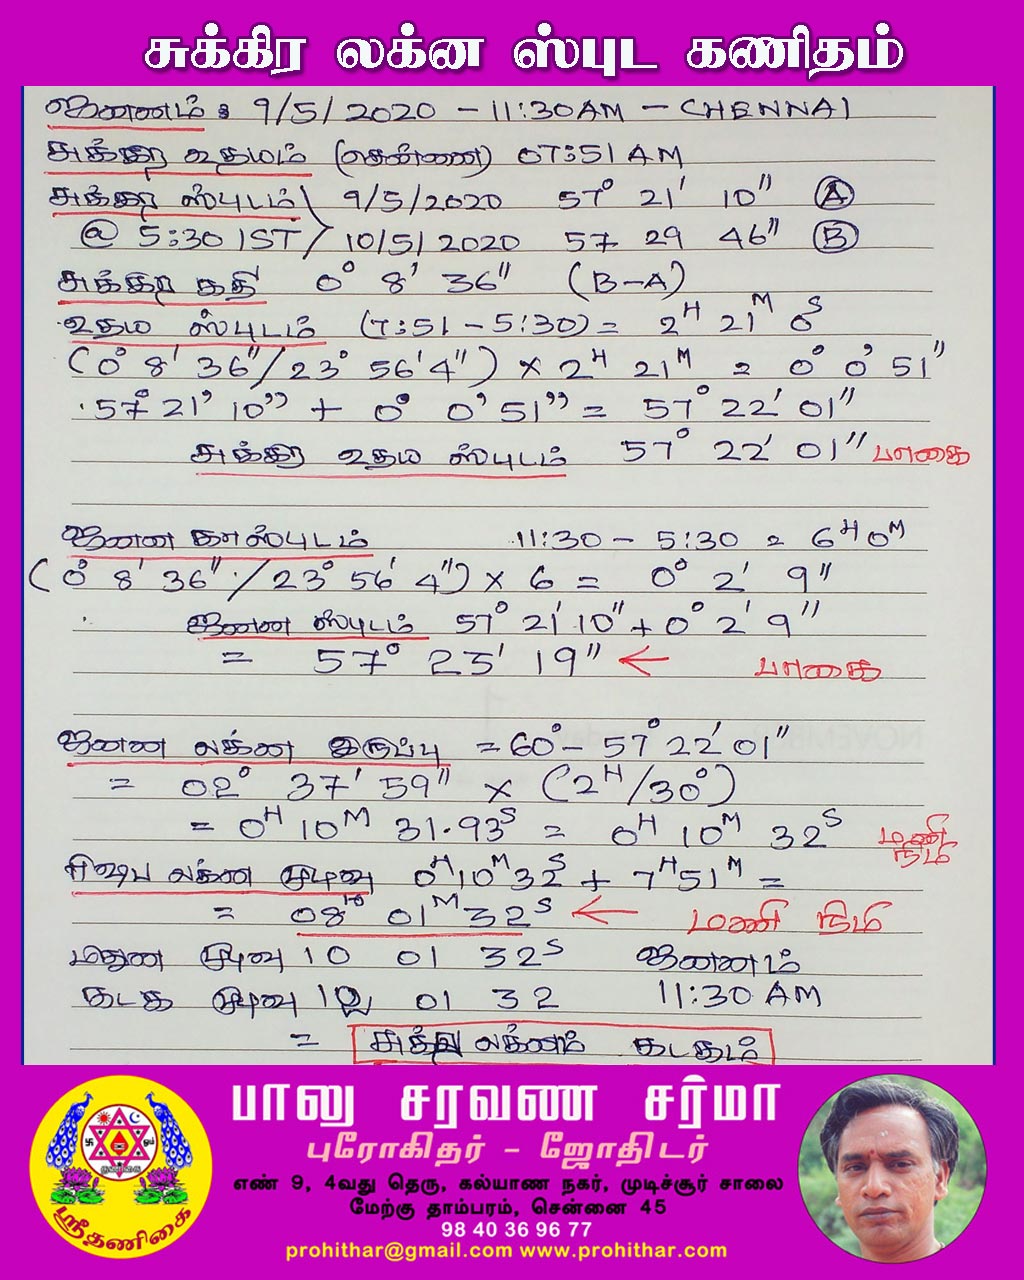 சுக்கிர லக்ன ஸ்புட கணிதம்
ஜனனம் : 9/5/2020 - 11:30AM - CHENNAI
சுக்கிர உதயம் (சென்னை) 07:51 AM
சுக்கிர ஸ்புடம் 9/5/2020 57° 21' 10" Ⓐ
@ 5:30 IST 10/5/2020 57 29 46" Ⓑ
சுக்கிர கதி 0° 8' 36" (B-A)
உதய ஸ்புடம் (7:51 - 5:30) = 2H 21M 0S
(0° 8' 36"/23° 56' 4") × 2H 21M = 0° 0' 51"
57° 21' 10" + 0° 0' 51" = 57° 22' 01"
சுக்கிர உதய ஸ்புடம் 57° 22' 01" பாகை
ஜனன கா ஸ்புடம் 11:30 - 5:30 = 6H 0M
(0° 8' 36"/23° 56' 4") × 6 = 0° 2' 9"
ஜனன ஸ்புடம் 57° 21' 10" + 0° 2' 9"
= 57° 23' 19" ← பாகை
ஜனன லக்ன இருப்பு = 60° - 57° 22' 01"
= 02° 37' 59" × (2H/30°)
= 0H 10M 31.93S = 0H 10M 32S மணி நிமி
ரிஷப லக்ன முடிவு 0H 10M 32S + 7H 51M =
= 08H 01M 32S ← மணி நிமி
மிதுன முடிவு 10 01 32S ஜனனம்
கடக முடிவு 12 01 32 11:30 AM
= சுக்கிர லக்னம் கடகம்
பாலு சரவண சர்மா
புரோகிதர் - ஜோதிடர்
எண் 9, 4வது தெரு, கல்யாண நகர், முடிச்சூர் சாலை
மேற்கு தாம்பரம், சென்னை 45
98 40 36 96 77
prohithar@gmail.com www.prohithar.com
ஸ்ரீதணிகை